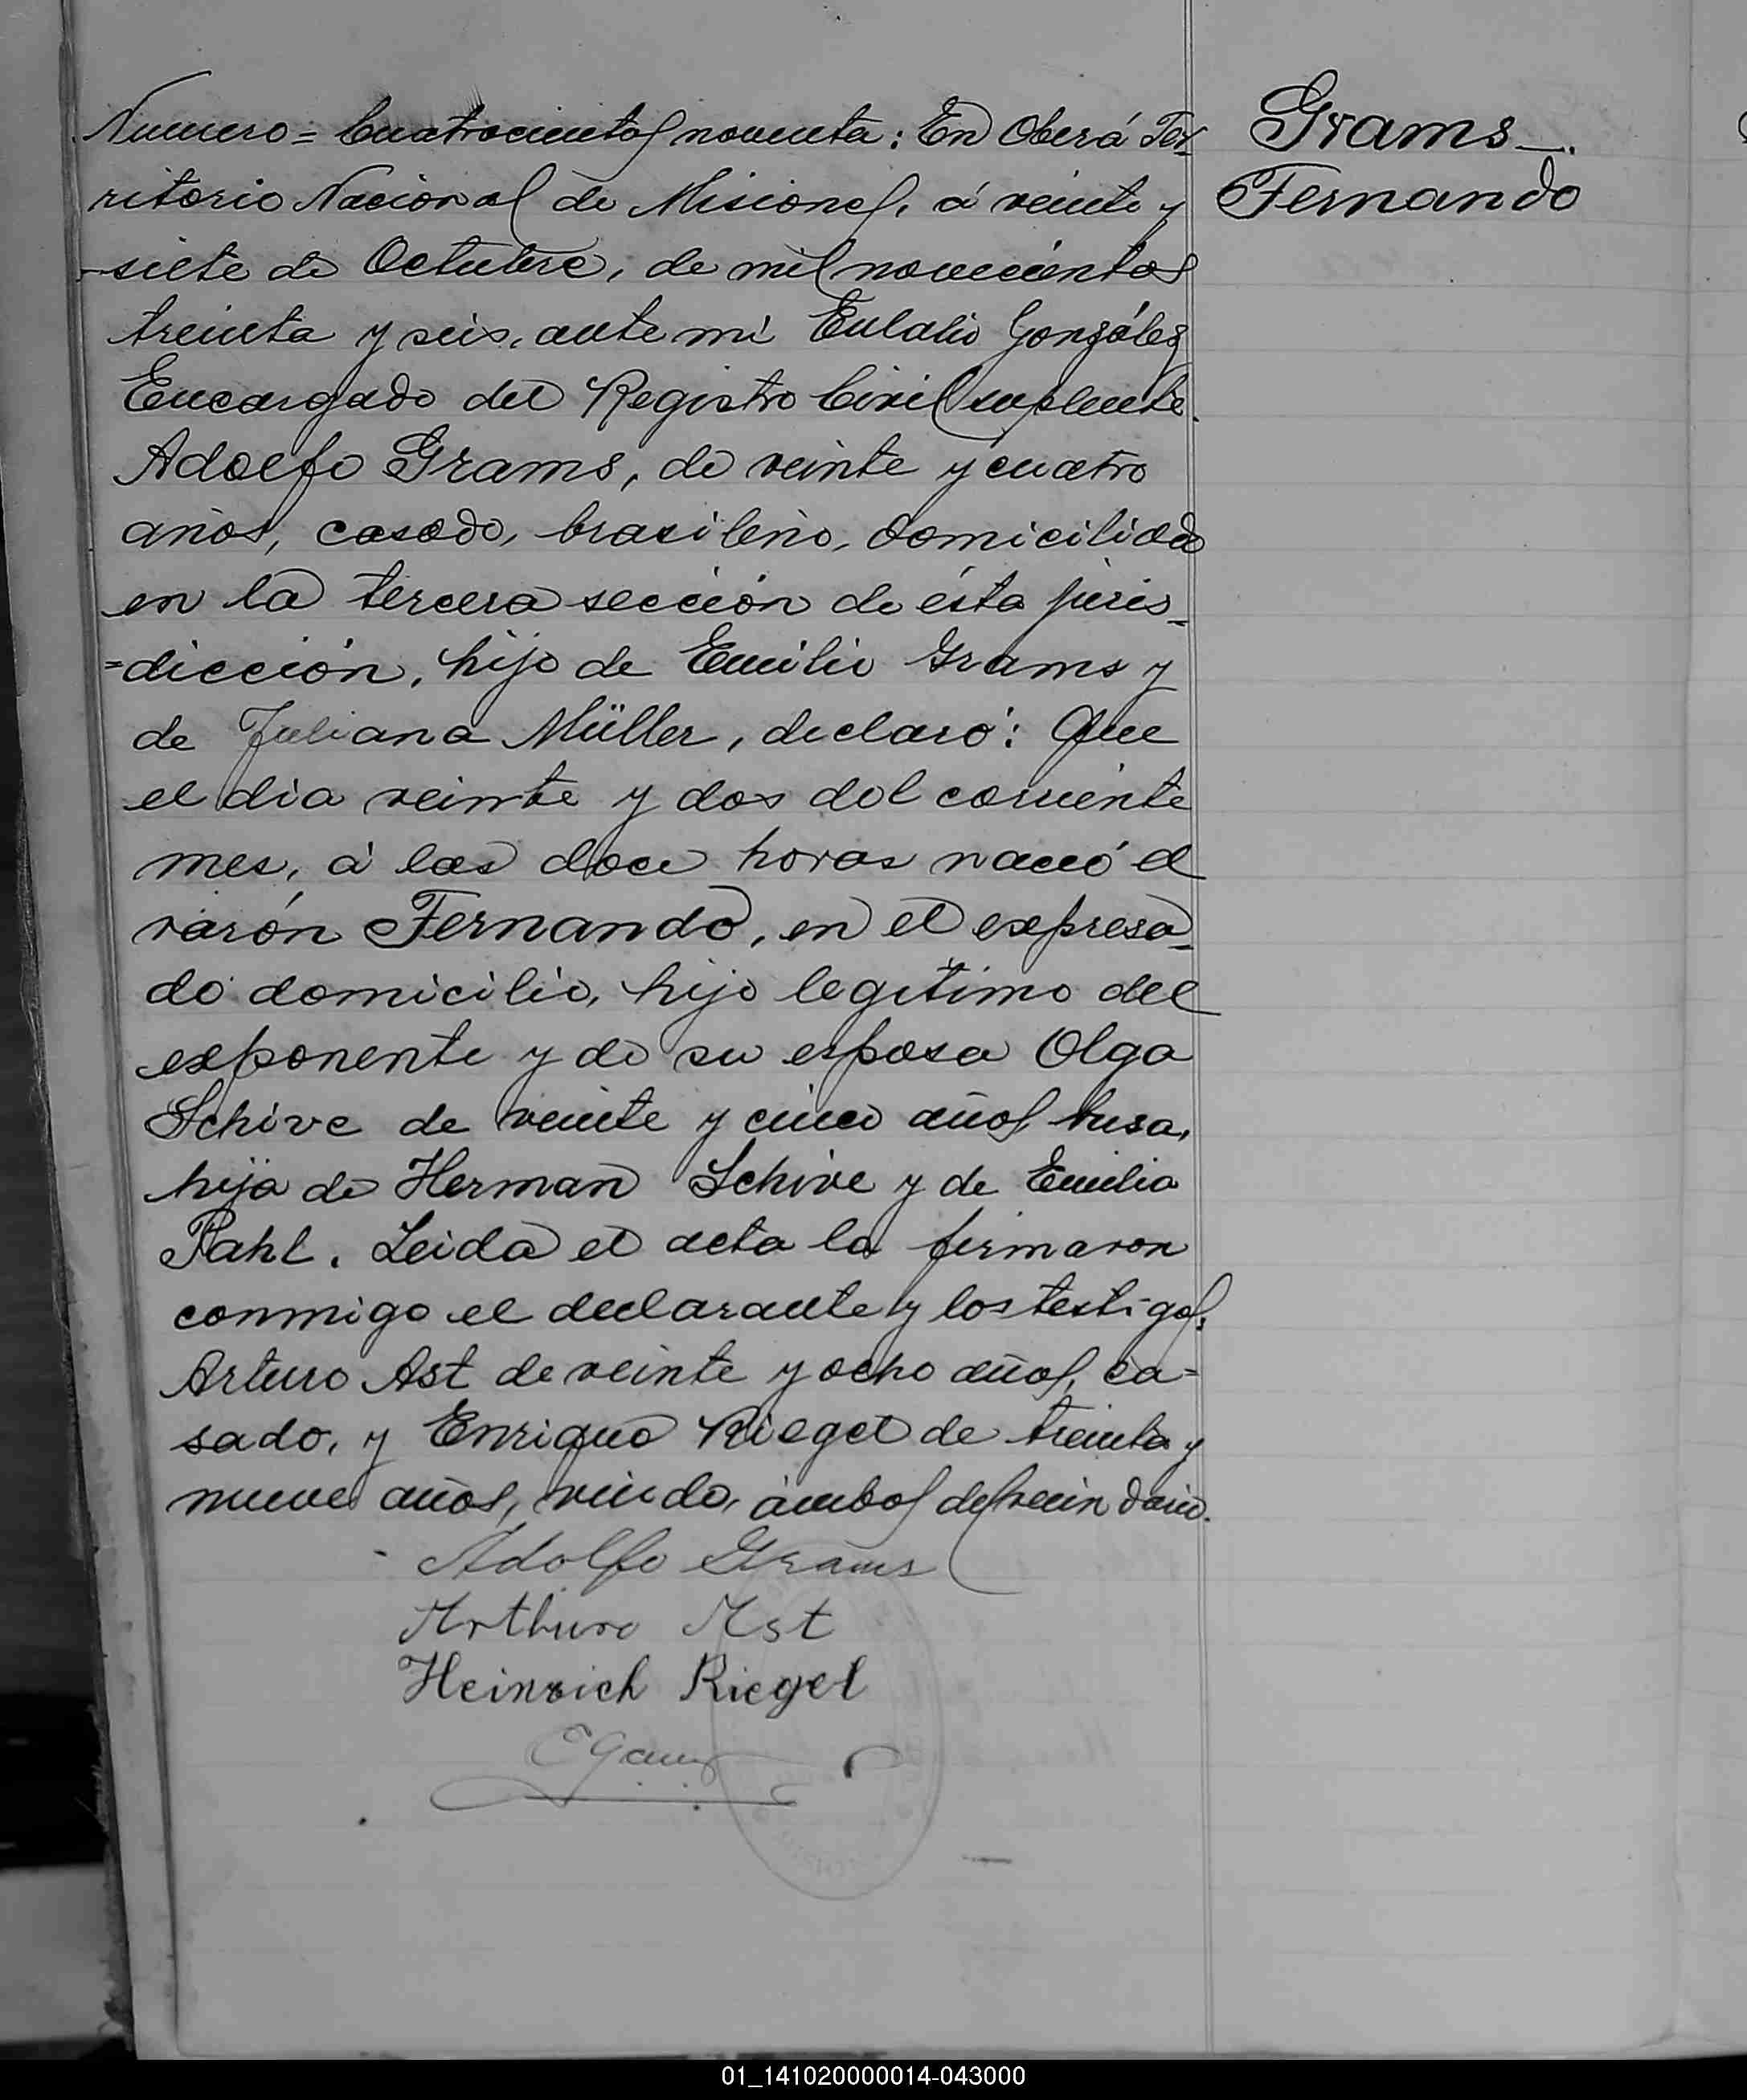 Numero = Cuatrocientos noventa: En Oberá Ter-
ritorio Nacional de Misiones, á veinte y
siete de Octubre, de mil novecientos
treinta y seis, ante mi Eulalio Gonzáles
Encargado del Registro Civil suplente.
Adolfo Grams, de veinte y cuatro
años, casado, brasileño, domiciliado
en la tercera sección de ésta juris-
=dicción, hijo de Emilio Grams y
de Juliana Müller, declaró: Que
el dia veinte y dos del corriente
mes, á las doce horas nació el
varón Fernando, en el expresa-
do domicilio, hijo legitimo del
exponente y de su esposa Olga
Schive de veinte y cinco años rusa,
hija de Herman Schive y de Emilia
Pahl. Leida el acta la firmaron
conmigo el declarante y los testigos:
Arturo Ast de veinte y ocho años, ca=
sado, y Enrique Riegel de treinta y
nueve años, viudo, ámbos del vecindario.
Adolfo Grams
Arthuro Ast
Heinrich Riegel
Grams_.
Fernando
01_141020000014-043000